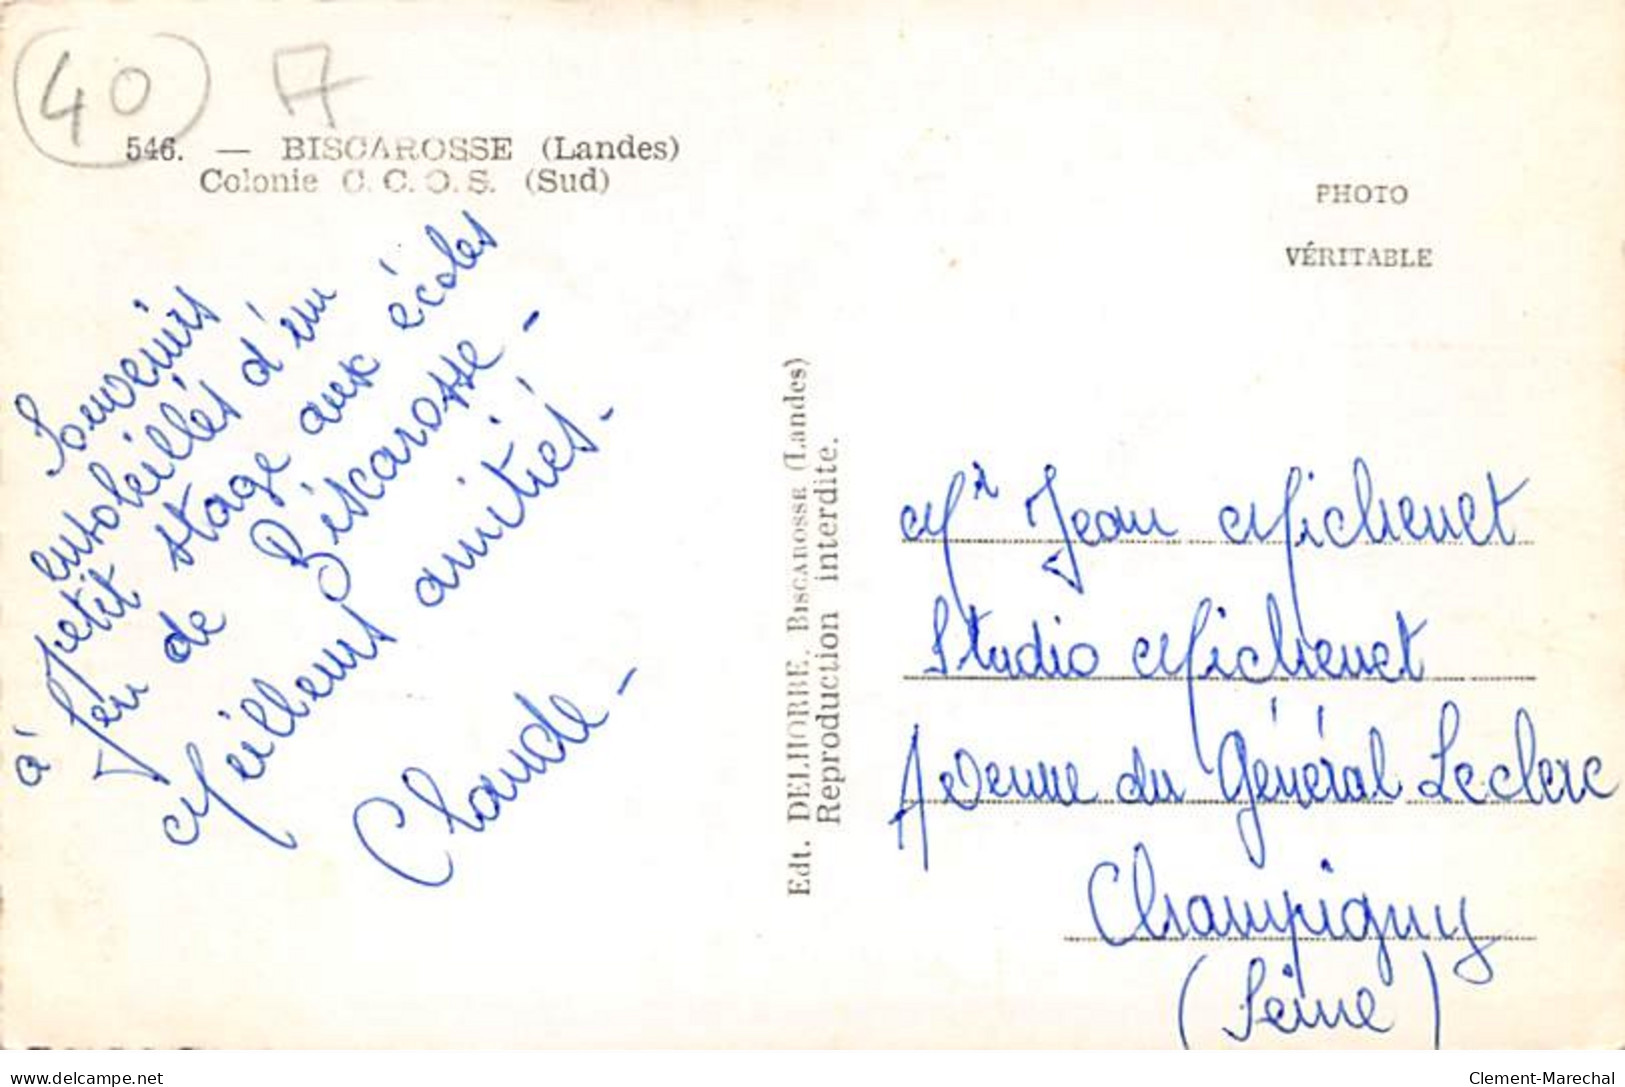 40 A
546. — BISCAROSSE (Landes)
Colonie C. C. O. S. (Sud)
Souvenirs
ensoleillés d'un
petit stage aux écoles
à feu de Biscarosse -
Meilleurs amitiés -
Claude -
Edt. DELHORBE. BISCAROSSE (Landes)
Reproduction interdite.
PHOTO
VÉRITABLE
Mr Jean Michenet
Studio Michenet
Avenue du Général Leclerc
Champigny
(Seine)
delcampe.net
Clement-Marechal